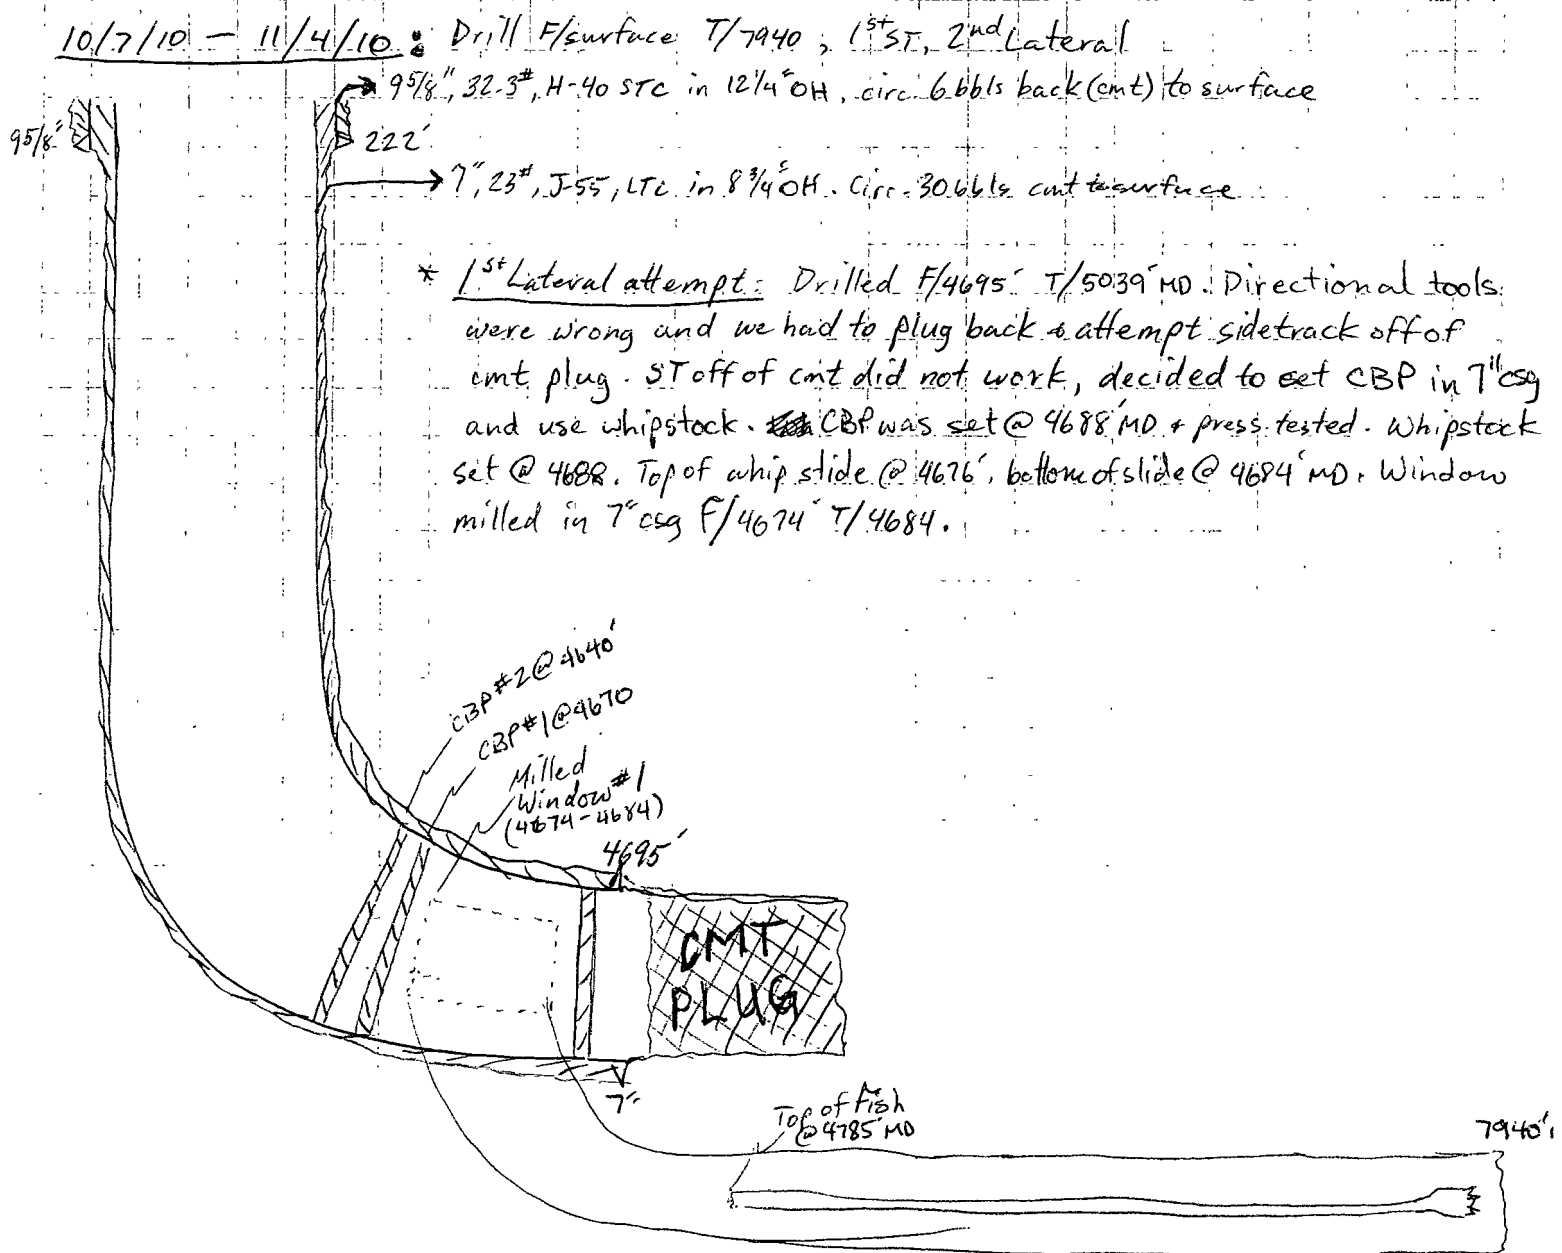 10/7/10 - 11/4/10 : Drill F/surface T/7940, 1st ST, 2nd Lateral
9 5/8", 32.3#, H-40 STC in 12 1/4" OH, circ. 6 bbls back (cmt) to surface
9 5/8"
222'
7", 23#, J-55, LTC in 8 3/4" OH. Circ. 30 bbls cmt to surface
* 1st Lateral attempt: Drilled F/4695' T/5039' MD. Directional tools
were wrong and we had to plug back & attempt sidetrack off of
cmt plug. ST off of cmt did not work, decided to set CBP in 7" csg
and use whipstock. CBP was set @ 4688' MD + press. tested. Whipstock
set @ 4688. Top of whip slide @ 4676', bottom of slide @ 4684' MD. Window
milled in 7" csg F/4674' T/4684.
CBP #2 @ 4640'
CBP #1 @ 4670
Milled
Window #1
(4674-4684)
4695'
CMT
PLUG
7"
Top of Fish
@ 4785' MD
7940'